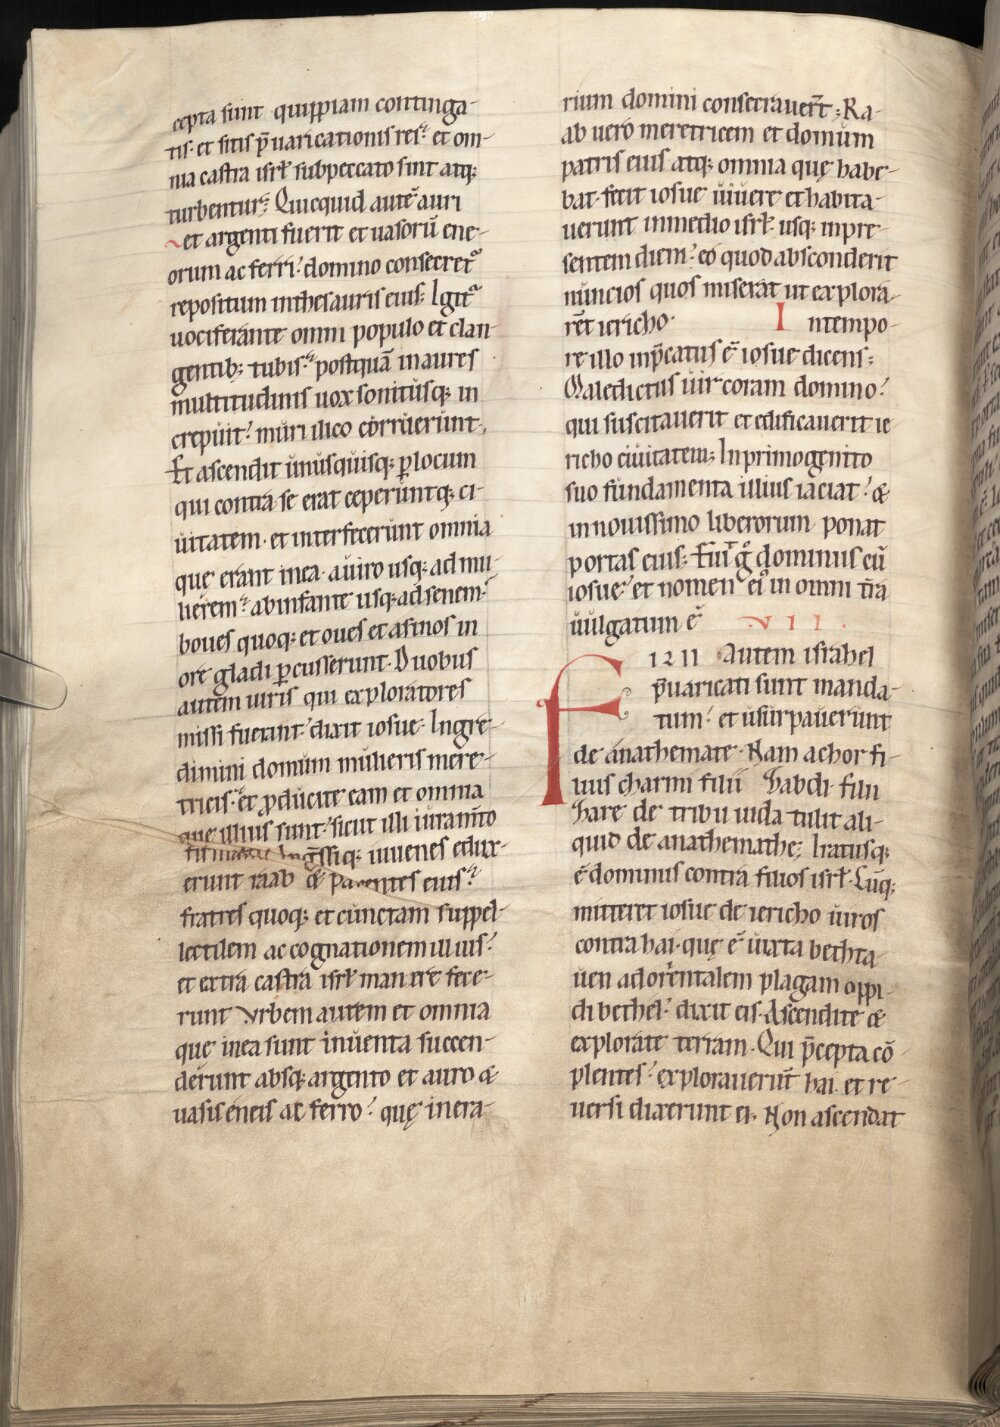 cepta sunt quippiam continga-
tis· et sitis p̄uaricationis rei: et om-
nia castra isrł sub peccato sint atq;
turbentur: Quicquid autē auri
et argenti fuerit et uasorū ene-
orum ac ferri: domino consecret᷑
repositum in thesauris eius: Igit᷑
uociferante omni populo et clan-
gentib; tubis: postquā in aures
multitudinis uox sonitusq; in
crepuit: muri ilico corruerunt,
Et ascendit unusquisq; ꝑ locum
qui contra se erat ceperuntq; ci-
uitatem· et interfecerunt omnia
que erant in ea· a uiro usq; ad mu-
lierem: ab infante usq; ad senem:
boues quoq; et oues et asinos in
ore gladi ꝑcusserunt· Duobus
autem uiris qui exploratores
missi fuerant: dixit iosue· Ingre-
dimini domum mulieris mere-
tricis: et ꝓducite eam et omnia
que illius sunt: sicut illi iuram̄to
Ing̅ssiq; iuuenes edux-
erunt raab & parentes eius:
fratres quoq; et cunctam suppel-
lectilem ac cognationem illius:
et extra castra isrł manere fece-
runt Vrbem autem et omnia
que in ea sunt inuenta succen-
derunt absq; argento et auro &
uasis eneis ac ferro: quę in era-
rium domini consecrauer̄t; Ra-
ab uero meretricem et domum
patris eius atq; omnia quę habe-
bat· fecit iosue uiuere et habita-
uerunt in medio isrł· usq; in pre-
sentem diem: eo quod absconderit
nuncios quos miserat ut explora-
rēt iericho· In tempo-
re illo inp̄catus ē iosue dicens;
Maledictus uir coram domino:
qui suscitauerit et edificauerit ie
richo ciuitatem; In primogenito
suo fundamenta illius iaciat: &
in nouissimo liberorum ponat
portas eius: Fuit g̊ dominus cū
iosue: et nomen ei᷒ in omni t̄ra
uulgatum ē VII.
Filii Autem israhel
p̄uaricati sunt manda-
tum: et usurpauerunt
de anathemate· Nam achor fi-
lius charmi filii Zabdi filii
Zare de tribu iuda tulit ali-
quid de anathemathe; Iratusq;
ē dominus contra filios isrł· Cūq;
mitteret iosue de iericho uiros
contra hai· quę ē iuxta betha-
uen ad orientalem plagam oppi-
di bethel: dixit eis· Ascendite &
explorate terram· Qui p̄cepta cō
plentes: explorauer̄t hai· et re-
uersi dixerunt ei· Non ascendat